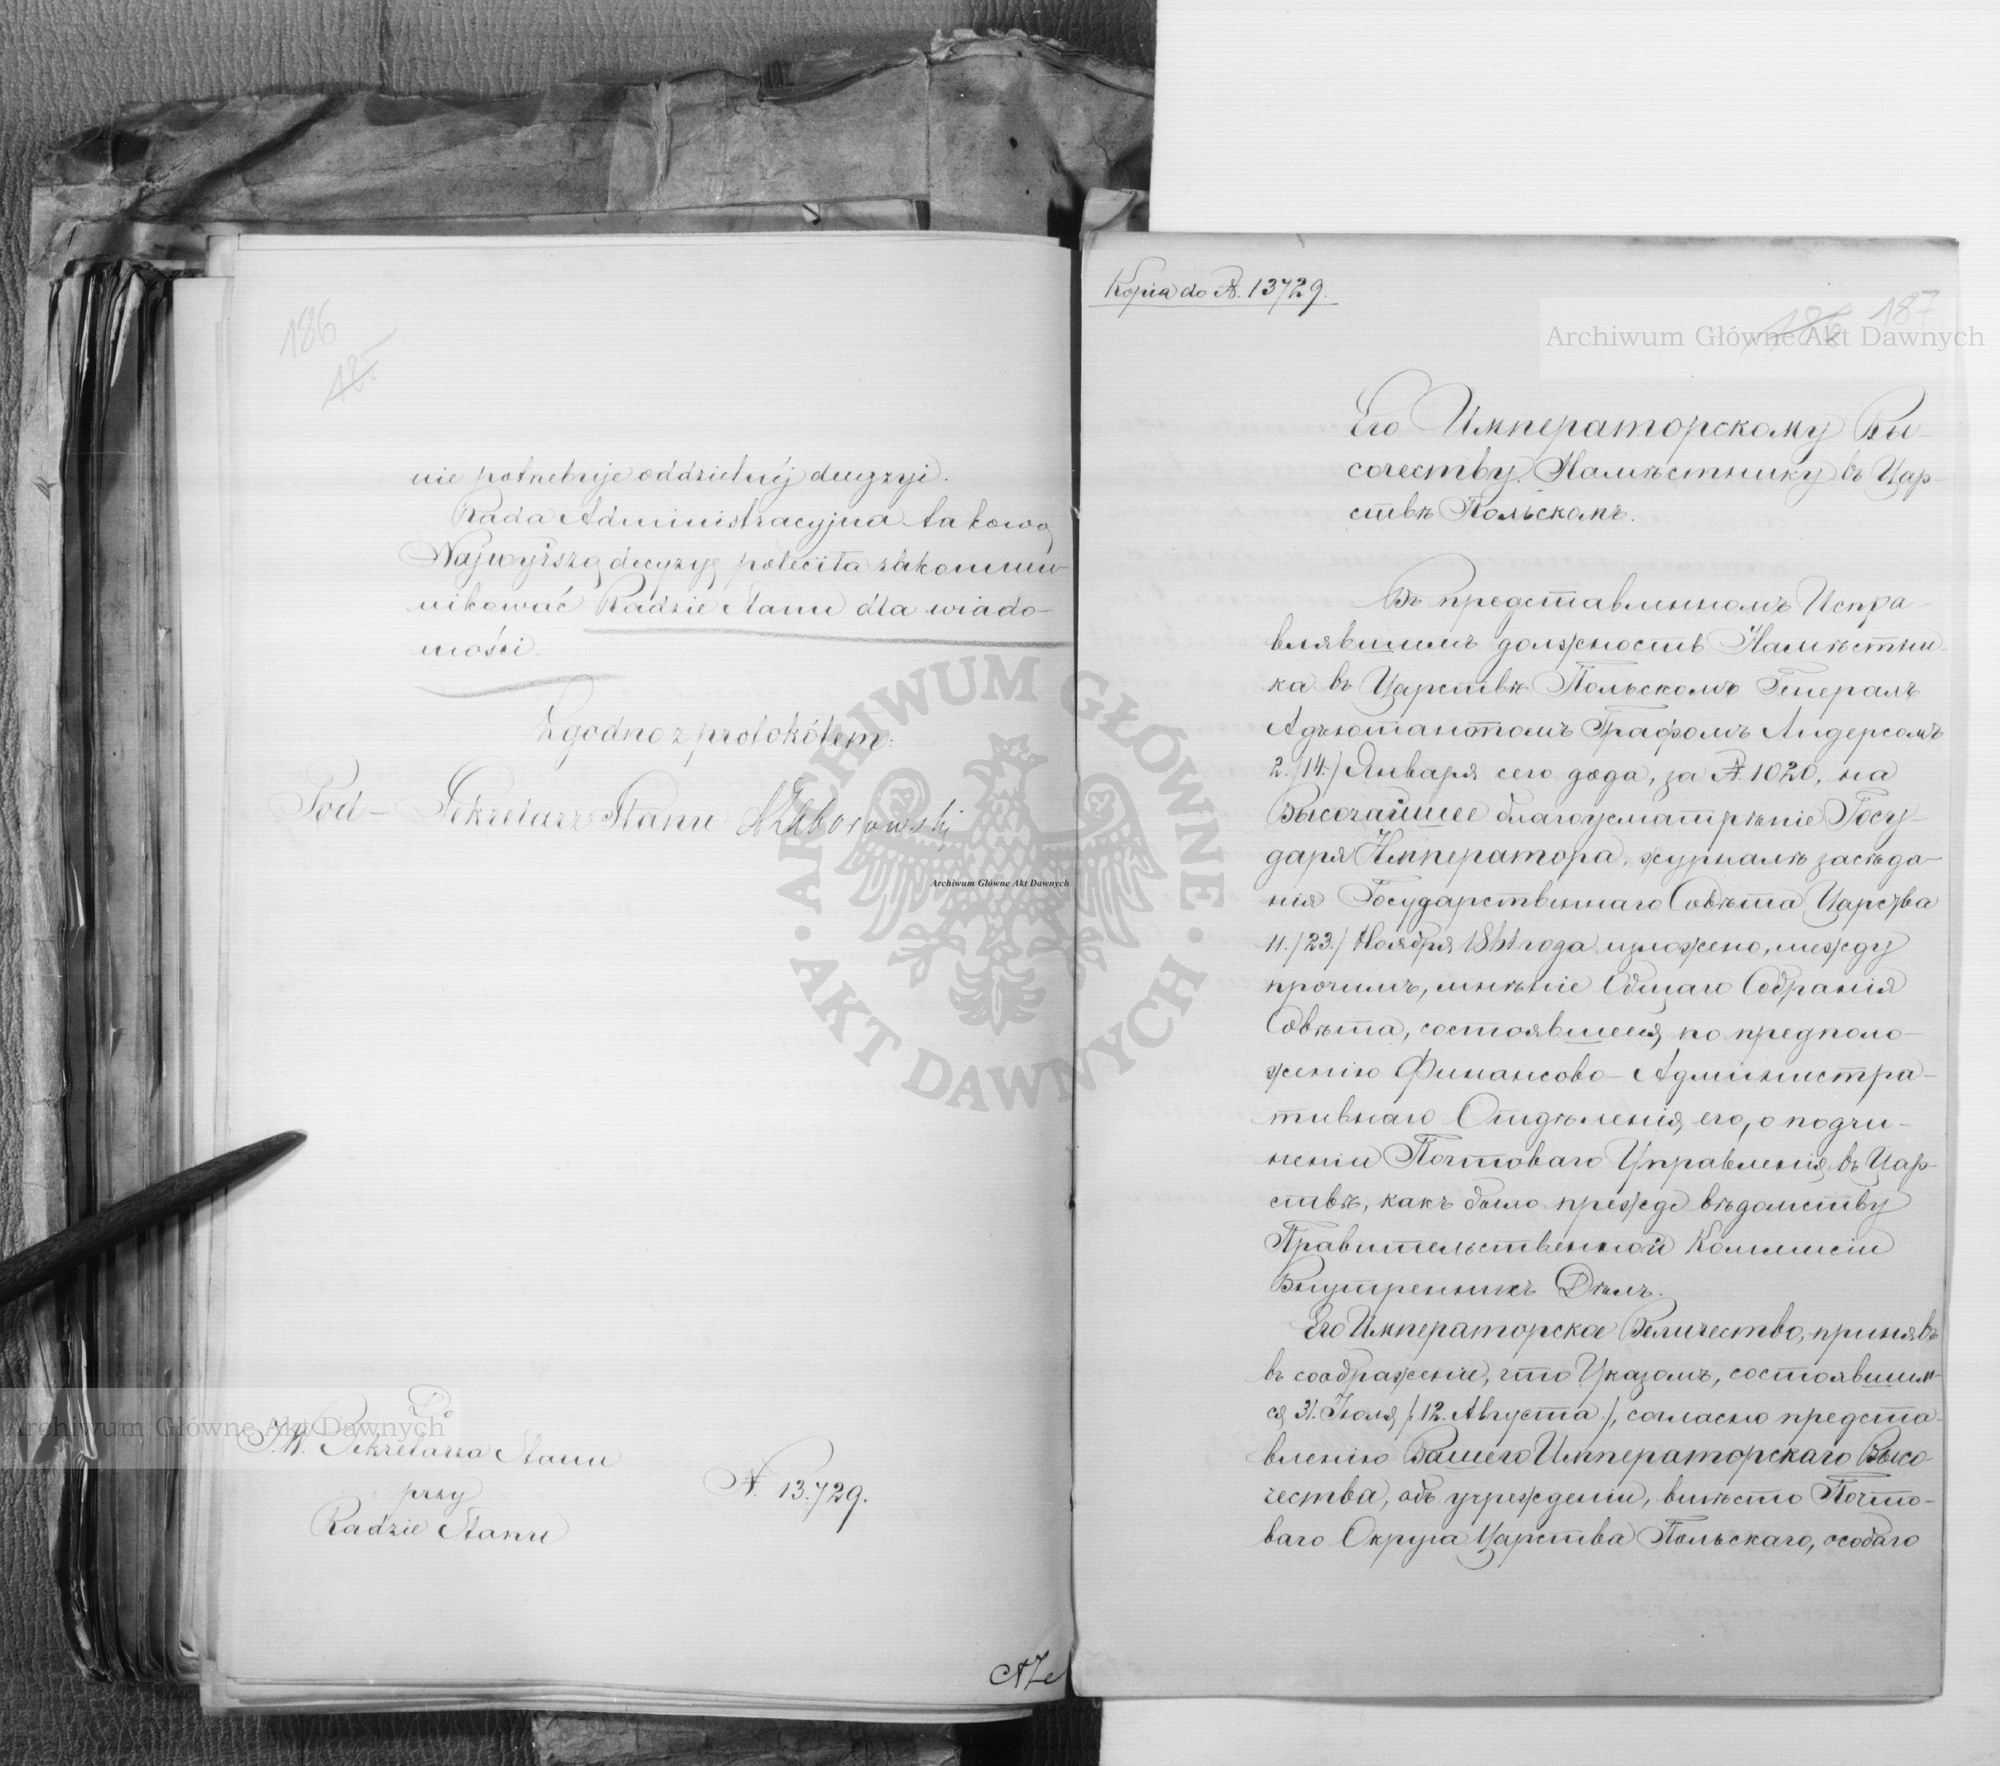 186
nie potrzebuje oddzielnéj decyzyi.
Rada Administracyjna takową
Najwyższą decyzyę poleciła zakommu-
nikować Radzie Stanu dla wiado-
mości.
Zgodno z protokółem:
Pod-Sekretarz Stanu AZaborowski
Do
J.W. Sekretarza Stanu
przy
Radzie Stanu
N. 13.729.
Kopia do N. 13729.
187
Его Императорскому Вы-
сочеству, Намѣстнику въ Цар-
ствѣ Польскомъ.
Въ представленномъ Испра-
влявшимъ должность Намѣстни-
ка въ Царствѣ Польскомъ Генералъ
Адъютантомъ Графомъ Лидерсомъ
2./14./ Января сего года, за N. 1020, на
Высочайшее благоусмотрѣніе Госу-
даря Императора, журналѣ засѣда-
нія Государственнаго Совѣта Царства
11./23./ Ноября 1861 года изложено, между
прочимъ, мнѣніе Общаго Собранія
Совѣта, состоявшееся, по предполо-
женію Финансово-Администра-
тивнаго Отдѣленія его, о подчи-
неніи Почтоваго Управленія въ Цар-
ствѣ, какъ было прежде вѣдомству
Правительственной Коммисіи
Внутреннихъ Дѣлъ.
Его Императорское Величество, принявъ
въ соображеніе, что Указомъ, состоявшим-
ся 31. Іюля /:12. Августа/, согласно предста-
вленію Вашего Императорскаго Высо-
чества, объ учрежденіи, вмѣсто Почто-
ваго Округа Царства Польскаго, особаго
Archiwum Główne Akt Dawnych
Archiwum Główne Akt Dawnych
Archiwum Główne Akt Dawnych
ARCHIWUM GŁÓWNE · AKT DAWNYCH ·